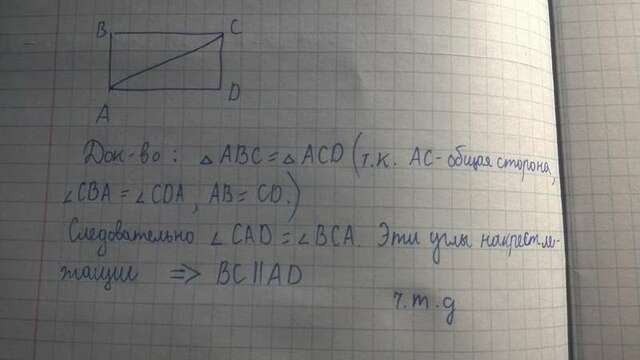 B C
A D
Док-во: △ABC = △ACD (т.к. AC - общая сторона,
∠CBA = ∠CDA, AB = CD.)
Следовательно ∠CAD = ∠BCA. Эти углы накрестле-
жащие => BC || AD
ч.т.д